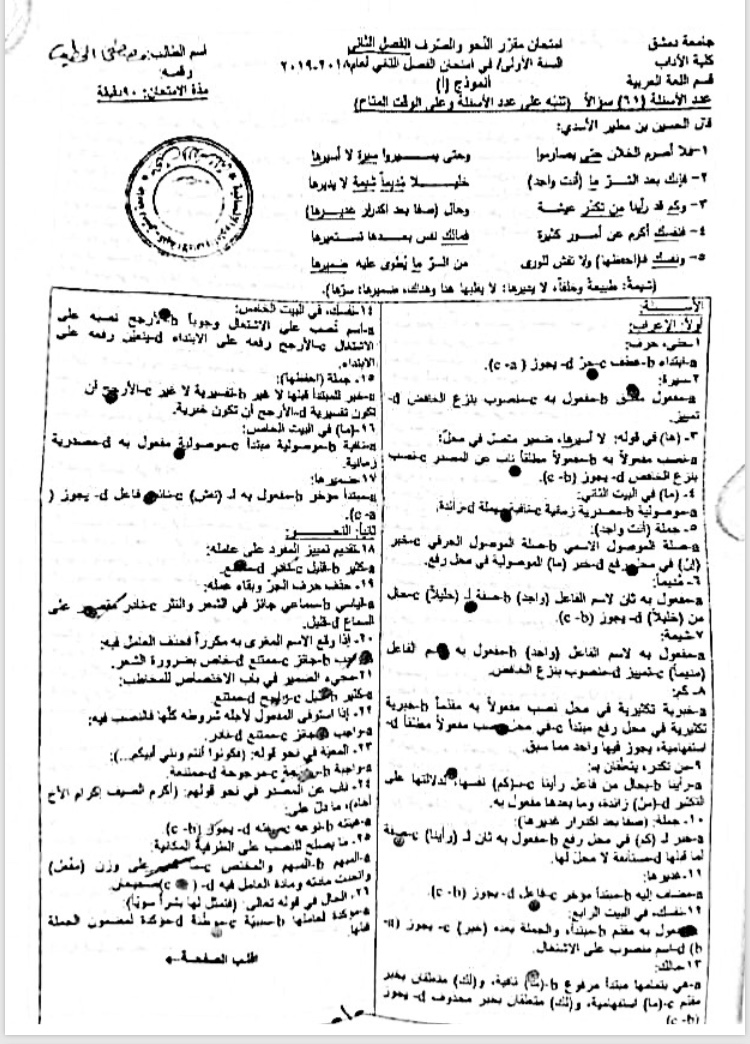 جامعة دمشق
كلية الآداب
قسم اللغة العربية
امتحان مقرّر النحو والصّرف الفصل الثاني
السنة الأولى/ في امتحان الفصل الثاني لعام ٢٠١٨-٢٠١٩
أنموذج (أ)
اسم الطالب:
رقمه:
مدة الامتحان: ٩٠دقيقة
عدد الأسئلة (٦١) سؤالاً (تنبّه على عدد الأسئلة وعلى الوقت المتاح)
قال الحسين بن مطير الأسدي:
١-حملا أصرم الخلان حتى يصارموا وحتى يسيروا سيرة لا أسيرها
٢- فإنك بعد الشرّ ما (أنت واجد) خليلا مُديماً شيمة لا يديرها
٣- وكم قد رأينا من تكدّر عيشة وحال (صفا بعد اكدرار غديرها)
٤- فنفسك أكرم عن أمور كثيرة فمالك نفس بعدها تستعيرها
٥- ونفسك فـ(احفظها) ولا تفش للورى من السرّ ما يُطوى عليه ضميرها
(شيمة: طبيعة وخلقاً، لا يديرها: لا يطبها هنا وهناك، ضميرها: سرّها).
الأسئلة:
أولاً: الإعراب:
١-حتى، حرف:
a-ابتداء b-عطف c-جرّ d- يجوز (c -a).
٢-سيرة:
a-مفعول مطلق b-مفعول به c-منصوب بنزع الخافض d-
تمييز.
٣- (ها) في قوله: لا أسيرها، ضمير متصل في محلّ:
a-نصب مفعولاً به b-مفعولاً مطلقاً ناب عن المصدر c-نصب
بنزع الخافض d- يجوز (c -b).
٤- (ما) في البيت الثاني:
a-موصولية b-مصدرية زمانية c-نافية مهملة d-زائدة.
٥- جملة (أنت واجد):
a-صلة الموصول الاسمي b-صلة الموصول الحرفي c-خبر
(إنّ) في محل رفع d-خبر (ما) الموصولية في محل رفع.
٦- مُديماً:
a-مفعول به ثان لاسم الفاعل (واجد) b-صفة لـ (خليلاً) c-حال
من (خليلاً) d- يجوز (c -b).
٧-شيمة:
a-مفعول به لاسم الفاعل (واجد) b-مفعول به لاسم الفاعل
(مديماً) c-تمييز d-منصوب بنزع الخافض.
٨- كم:
a-خبرية تكثيرية في محل نصب مفعولاً به مقدّماً b-خبرية
تكثيرية في محل رفع مبتدأ c-في محل نصب مفعولاً مطلقاً d-
استفهامية، يجوز فيها واحد مما سبق.
٩-من تكدّر، يتعلقان بـ:
a-رأينا b-بحال من فاعل رأينا c-(كم) نفسها، لدلالتها على
التكثير d-(من) زائدة، وما بعدها مفعول به.
١٠- جملة: (صفا بعد اكدرار غديرها):
a-خبر لـ (كم) في محل رفع b-مفعول به ثان لـ (رأينا) c-صفة
لما قبلها d-مستأنفة لا محل لها.
١١- غديرها:
a-مضاف إليه b-مبتدأ مؤخر c-فاعل d-يجوز (c -b).
١٢-نفسك، في البيت الرابع:
a-مفعول به مقدّم b-مبتدأ، والجملة بعده (خبر) c- يجوز (a-
b) d-اسم منصوب على الاشتغال.
١٣-مالك:
a-هي بتمامها مبتدأ مرفوع b-(ما) نافية، و(لك) متعلقان بخبر
مقدّم c-(ما) استفهامية، و(لك) متعلقان بخبر محذوف d- يجوز
(c -b)
١٤-نفسك، في البيت الخامس:
a-اسم نُصب على الاشتغال وجوباً b-الأرجح نصبه على
الاشتغال c-الأرجح رفعه على الابتداء d-يتعيّن رفعه على
الابتداء.
١٥. جملة (احفظها):
a-خبر للمبتدأ قبلها لا غير b-تفسيرية لا غير c-الأرجح أن
تكون تفسيرية d-الأرجح أن تكون خبرية.
١٦-(ما) في البيت الخامس:
a-نافية b-موصولية مبتدأ c-موصولية مفعول به d-مصدرية
زمانية.
١٧-ضميرها:
a-مبتدأ مؤخر b-مفعول به لـ (تفش) c-نائب فاعل d- يجوز (
c -a).
ثانياً: النحو:
١٨.تقديم تمييز المفرد على عامله:
a-كثير b-قليل c-نادر d-ممتنع.
١٩. حذف حرف الجرّ وبقاء عمله:
a-قياسي b-سماعي جائز في الشعر والنثر c-نادر مقتصر على
السماع d-قليل.
٢٠. إذا وقع الاسم المغرى به مكرراً فحذف العامل فيه:
a-واجب b-جائز c-ممتنع d-خاص بضرورة الشعر.
٢١-مجيء الضمير في باب الاختصاص للمخاطب:
a-كثير b-قليل c-راجح d-ممتنع.
٢٢. إذا استوفى المفعول لأجله شروطه كلّها فالنصب فيه:
a-واجب b-جائز c-ممتنع d-نادر.
٢٣. المعيّة في نحو قوله: (فكونوا أنتم وبني أبيكم...):
a-واجبة b-راجحة c-مرجوحة d-ممتنعة.
٢٤. ناب عن المصدر في نحو قولهم: (أكرم الضيف إكرام الأخ
أخاه)، ما دلّ على:
a-هيئته b-نوعه c-صفته d- يجوز (c -b).
٢٥. ما يصلح للنصب على الظرفية المكانية:
a-المبهم b-المبهم والمختص c-ما صيغ على وزن (مفعل)
واتحدت مادته ومادة العامل فيه d- (c
٢٦. الحال في قوله تعالى: (فتمثل لها بشراً سوياً):
a-مؤكدة لعاملها b-سببيّة c-موطّئة d-مؤكدة لمضمون الجملة
قبلها.
اقلب الصفحة←